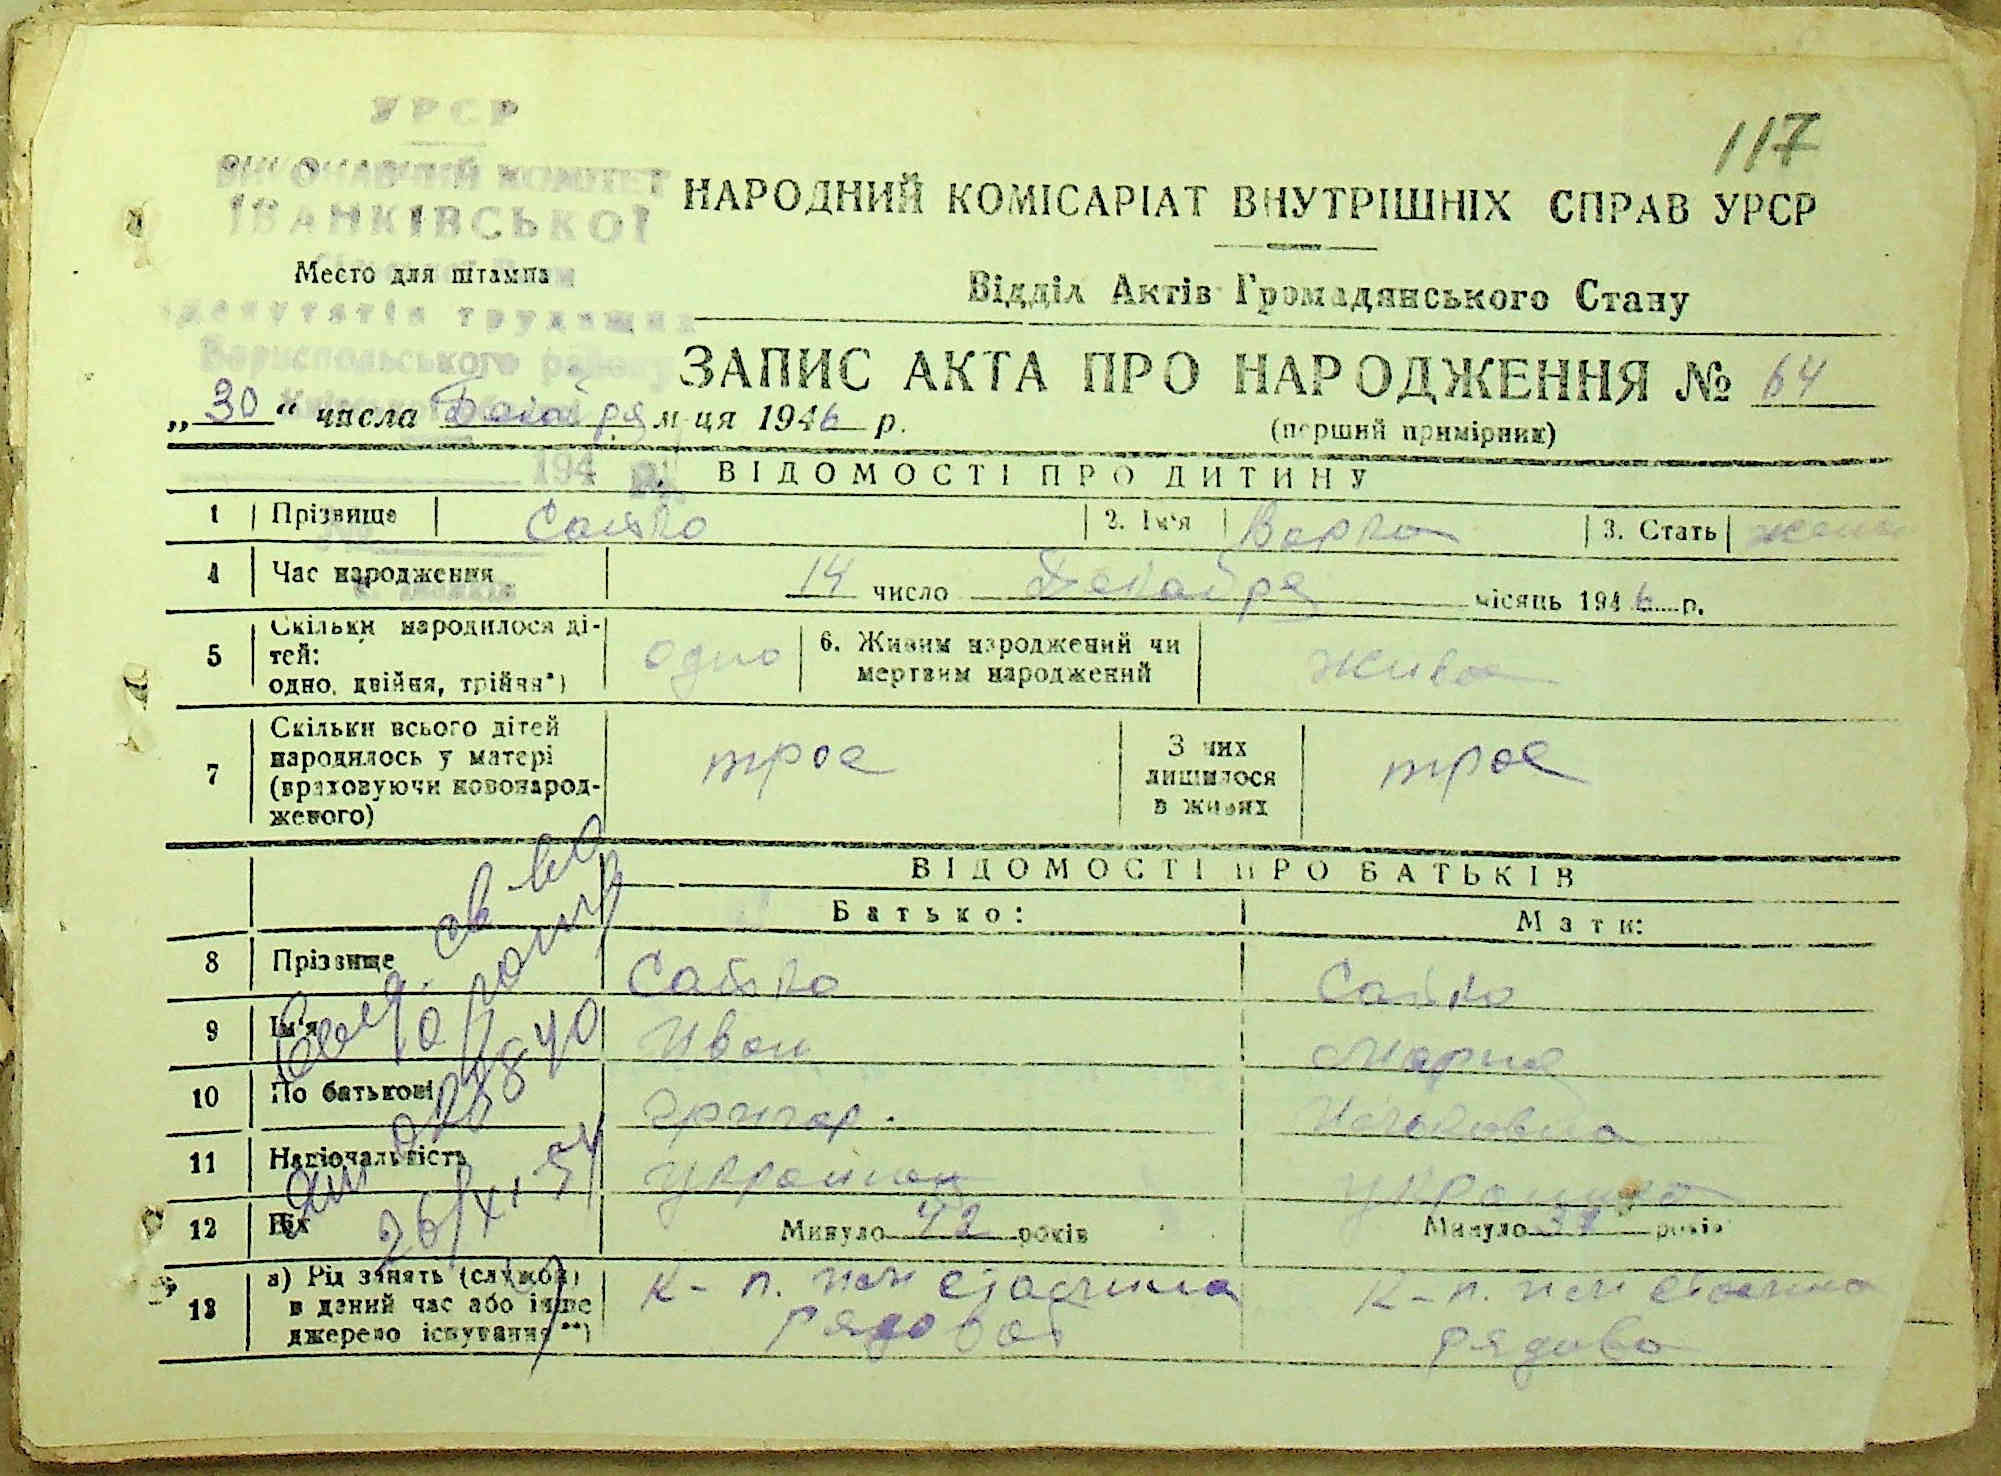 УРСР
117
ВИКОНАВЧИЙ КОМІТЕТ
ІВАНКІВСЬКОЇ
НАРОДНИЙ КОМІСАРІАТ ВНУТРІШНІХ СПРАВ УРСР
Место для штампа
Відділ Актів Громадянського Стану
депутатів трудящих
Бориспольського району
ЗАПИС АКТА ПРО НАРОДЖЕННЯ № 64
„30“ числа Декабря м-ця 1946 р.
(перший примірник)
194
ВІДОМОСТІ ПРО ДИТИНУ
1 Прізвище Сайко 2. Ім'я Варка 3. Стать жен
4 Час народження 14 число Декабря місяць 1946 р.
5 Скільки народилося ді-
тей:
одно, двійня, трійня*) одно 6. Живим народжений чи
мертвим народжений жива
7 Скільки всього дітей
народилось у матері
(враховуючи новонарод-
женого) трое З них
лишилося
в живих трое
ВІДОМОСТІ ПРО БАТЬКІВ
Батько: Мати:
8 Прізвище Сайко Сайко
9 Ім'я Иван Мария
10 По батькові Григор.
11 Національність украинец украинка
12 Вік Минуло 42 років Минуло 37 років
13 а) Рід занять (служби)
в даний час або інше
джерело існування**) к-п. им Сталина
рядовой к-п. им Сталина
рядова
26/XI-54